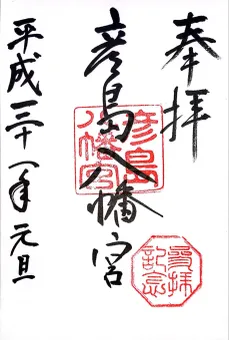 奉拝
彦島八幡宮
平成三十一年 元旦
彦島
八幡宮
参拝
記念